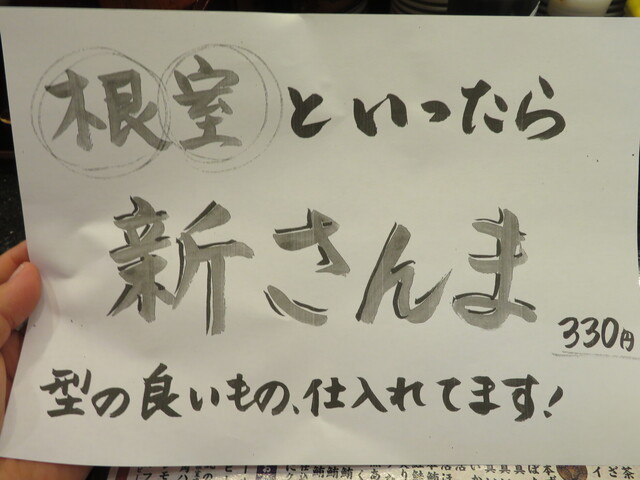 根室といったら
新さんま
330円
型の良いもの、仕入れてます!